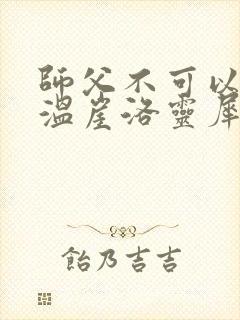 師父不可以
溫崖洛靈犀
飴乃吉吉